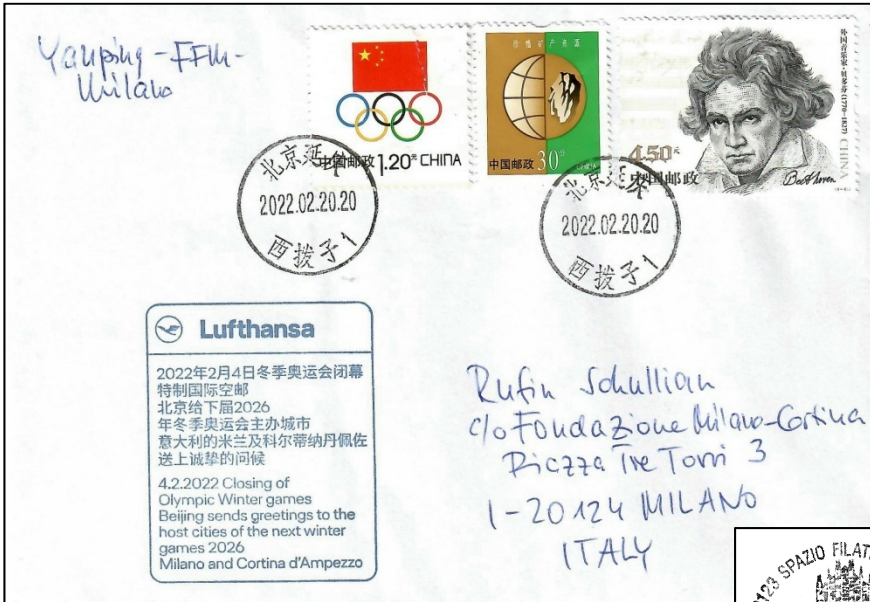 Yanping-FFM-
Milano
中国邮政 1.20元 CHINA
珍惜矿产资源
中国邮政 30分
外国音乐家·贝多芬(1770—1827)
4.50元
中国邮政
CHINA
Beethoven
北京延庆
2022.02.20.20
西拨子1
北京延庆
2022.02.20.20
西拨子1
Lufthansa
2022年2月4日冬季奥运会闭幕
特制国际空邮
北京给下届2026
年冬季奥运会主办城市
意大利的米兰及科尔蒂纳丹佩佐
送上诚挚的问候
4.2.2022 Closing of
Olympic Winter games
Beijing sends greetings to the
host cities of the next winter
games 2026
Milano and Cortina d'Ampezzo
Rufin Schullian
c/o Fondazione Milano-Cortina
Piazza Tre Torri 3
I-20124 MILANO
ITALY
123 SPAZIO FILAT